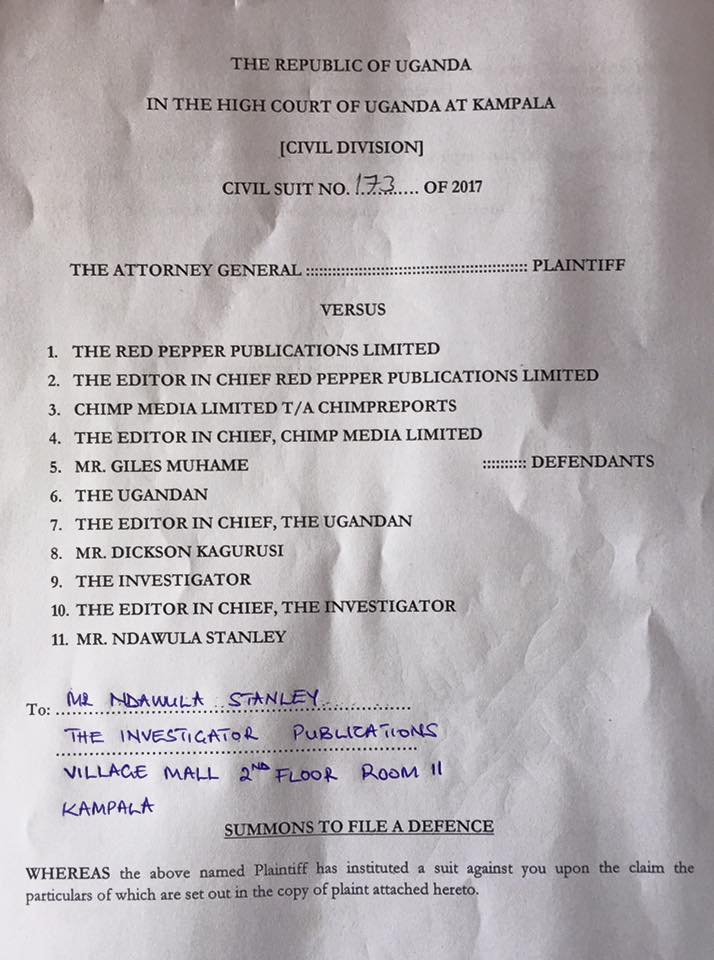 THE REPUBLIC OF UGANDA
IN THE HIGH COURT OF UGANDA AT KAMPALA
[CIVIL DIVISION]
CIVIL SUIT NO. 173...... OF 2017
THE ATTORNEY GENERAL :::::::::::::::::::::::::::::::::::::::::::::::::: PLAINTIFF
VERSUS
1. THE RED PEPPER PUBLICATIONS LIMITED
2. THE EDITOR IN CHIEF RED PEPPER PUBLICATIONS LIMITED
3. CHIMP MEDIA LIMITED T/A CHIMPREPORTS
4. THE EDITOR IN CHIEF, CHIMP MEDIA LIMITED
5. MR. GILES MUHAME :::::::::: DEFENDANTS
6. THE UGANDAN
7. THE EDITOR IN CHIEF, THE UGANDAN
8. MR. DICKSON KAGURUSI
9. THE INVESTIGATOR
10. THE EDITOR IN CHIEF, THE INVESTIGATOR
11. MR. NDAWULA STANLEY
To: MR NDAWULA STANLEY
THE INVESTIGATOR PUBLICATIONS
VILLAGE MALL 2ND FLOOR ROOM 11
KAMPALA
SUMMONS TO FILE A DEFENCE
WHEREAS the above named Plaintiff has instituted a suit against you upon the claim the
particulars of which are set out in the copy of plaint attached hereto.